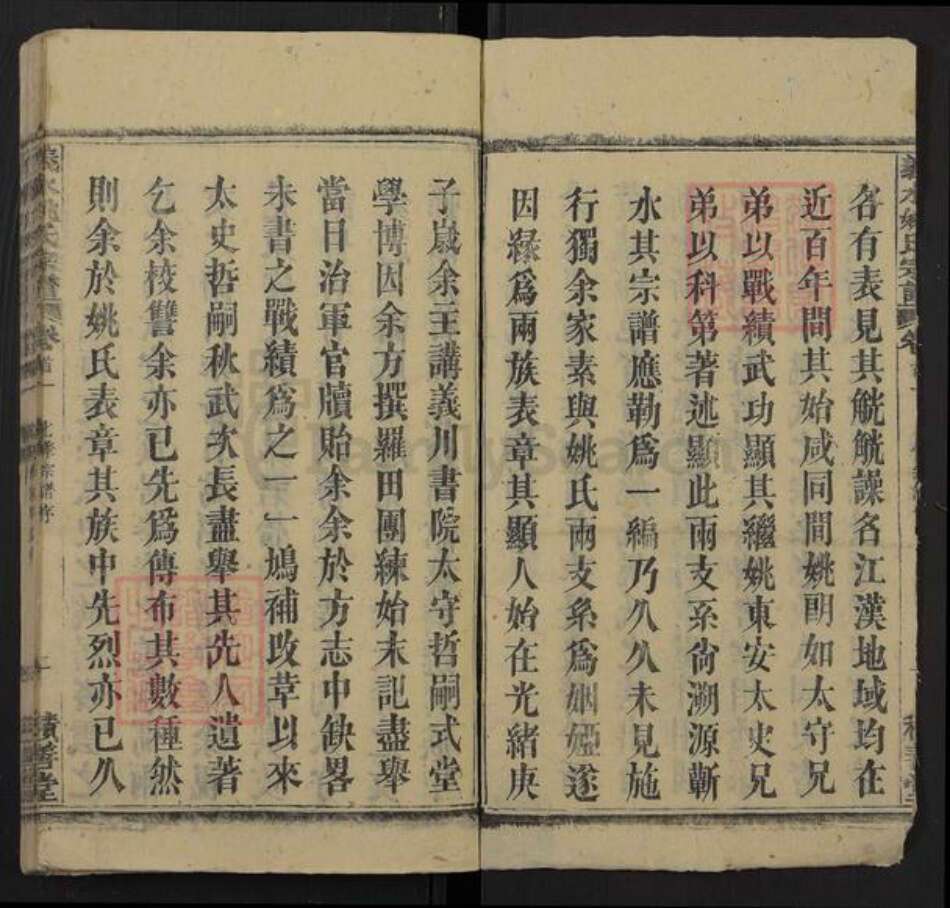 各有表見其觥觥譟名江漢地域均在
近百年間其始咸同間姚朙如太守兄
弟以戰績武功顯其繼姚東安太史兄
弟以科第著述顯此兩支系尙溯源蘄
水其宗譜應勒爲一編乃久久未見施
行獨余家素與姚氏兩支系爲姻婭遂
因緣爲兩族表章其顯人始在光緒庚
子歲余主講義川書院太守哲嗣式堂
學博因余方撰羅田團練始末記盡舉
當日治軍官牘貽余余於方志中缺畧
未書之戰績爲之一一鳩補攷葺以來
太史哲嗣秋武次長盡舉其先人遺著
乞余校讐余亦已先爲傳布其數種然
則余於姚氏表章其族中先烈亦已久
氏宗譜
卷首一
積善堂